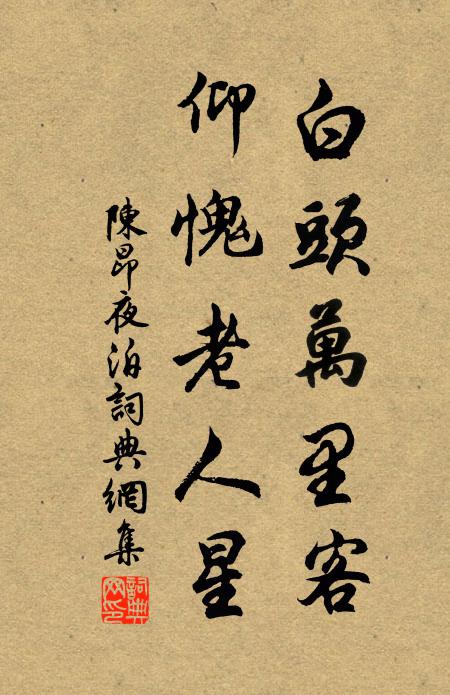 白頭萬里客
仰愧老人星
陳昂夜泊詞典網集
詞典网印